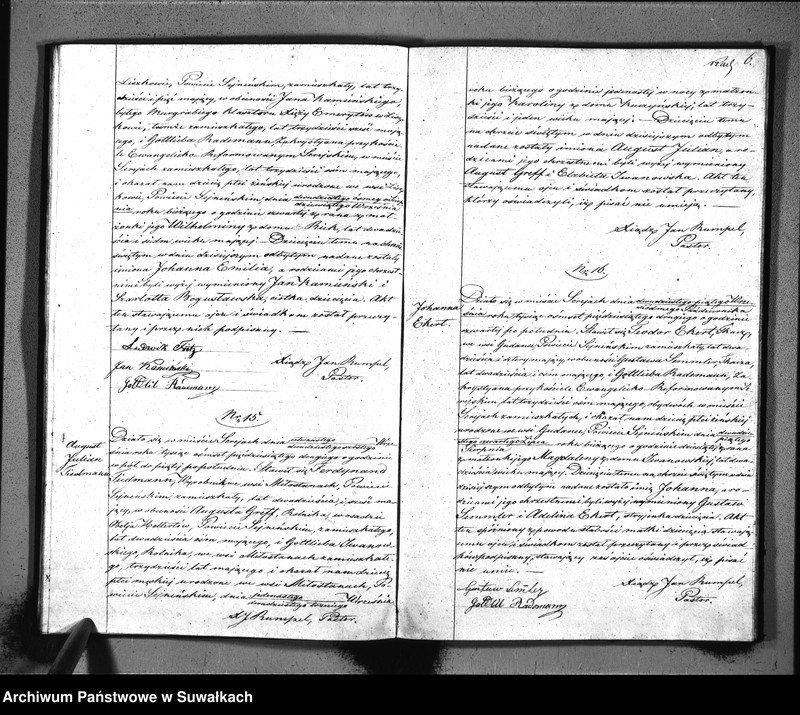 Liszkowie, Powiecie Sejneńskim, zamieszkały, lat trzy
dzieści i pięć mający, w obecności Jana Kamieńskiego,
byłego klasztoru Xięży Emerytów w Lisz
kowie, tamże zamieszkałego, lat trzydzieści sześć mają
cego, i Gottlieba Rademann Zakrystyana przy kościo
le Ewangelicko Reformowanym Serejskim, w mieście
Serejach zamieszkałego, lat trzydzieści ośm mającego,
i okazał nam dziecię płci żeńskiej urodzone we wsi Lisz
kowie, Powiecie Sejneńskim, dnia
roku bieżącego o godzinie czwartej z rana z mał
żonki jego Wilhelminy z domu Rick, lat dwadzie
ścia i siedm wieku mającej. — Dziecięciu temu na chrzcie
świętym w dniu dzisiejszym odbytym nadane zostały
imiona Johanna Emilia, a rodzicami jego chrzest
nemi byli wyżej wymieniony Jan Kamieński i
Szarlotta Bogusławska, ciotka dziecięcia. Akt
ten stawającemu ojcu i świadkom został przeczy
tany i przez nich podpisany. —
Ludwik Fritz
Jan Kamieński
Gottlieb Radmann
Xiądz Jan Rumpel,
Pastor.
No 15.
August
Julian
Tiedmann
Działo się w mieście Serejach dnia Wrze
śnia roku tysiąc ośmset pięćdziesiątego drugiego o godzinie
w pół do piątej po południu. Stawił się Ferdynand
Tiedmann, Wyrobnik we wsi Mitostanach, Powiecie
Sejneńskim, zamieszkały, lat dwadzieścia i sześć mają
cy, w obecności Augusta Greff, Rolnika, w osadzie
Powiecie Sejneńskim, zamieszkałego
lat dwadzieścia ośm mającego, i Gottlieba Iwanow
skiego, Rolnika, we wsi Mitostanach zamieszkałe
go, trzydzieści lat mającego i okazał nam dziecię
płci męzkiej urodzone we wsi Mitostanach, Po
wiecie Sejneńskim, dnia jedenastego Września
dwudziestego trzeciego
XJ Rumpel, Pastor.
6.
roku bieżącego o godzinie jedenastej w nocy z małżon
ki jego Karoliny z domu Kuczyńskiej, lat trzy
dzieści i jeden wieku mającej. — Dziecięciu temu
na chrzcie świętym w dniu dzisiejszym odbytym
nadane zostały imiona August Julian, a ro
dzicami jego chrzestnemi byli wyżej wymieniony
August Greff i Elżbieta Iwanowska. Akt ten
stawającemu ojcu i świadkom został przeczytany,
którzy oświadczyli, iż pisać nie umieją. —
Xiądz Jan Rumpel,
Pastor.
No 16.
Johanna
Ekert.
Działo się w mieście Serejach dnia dwudziestego piątego Wrze
śnia roku tysiąc ośmset pięćdziesiątego drugiego o godzinie
czwartej po południu. Stawił się Teodor Ekert, Tkacz,
we wsi Gudance, Powiecie Sejneńskim zamieszkały, lat dwa
dzieścia i cztery mający, w obecności Gustawa Semmler, Tkacza,
lat dwadzieścia i ośm mającego i Gottlieba Rademann, Za
krystyana przy kościele Ewangelicko Reformowanym
lat trzydzieści ośm mającego, obydwóch w mieście
Serejach zamieszkałych, i okazał nam dziecię płci żeńskiej
urodzone we wsi Gudance, Powiecie Sejneńskim dnia
roku bieżącego o godzinie
z małżonki jego Magdaleny z domu Iwanowskiej, lat dwa
dzieścia wieku mającej. Dziecięciu temu na chrzcie świętym w dniu
dzisiejszym odbytym nadane zostało imię Johanna, a ro
dzicami jego chrzestnemi byli wyżej wymieniony Gustaw
Semmler i Adelina Ekert, stryjenka dziecięcia. Akt
ten spóźniony z powodu słabości matki dziecięcia stawają
cemu ojcu i świadkom został przeczytany i przez świad
ków podpisany, stawający zaś ojciec oświadczył, iż pisać
nie umie. —
Gustaw Semler
Gottlieb Radmann
Xiądz Jan Rumpel,
Pastor.
Archiwum Państwowe w Suwałkach